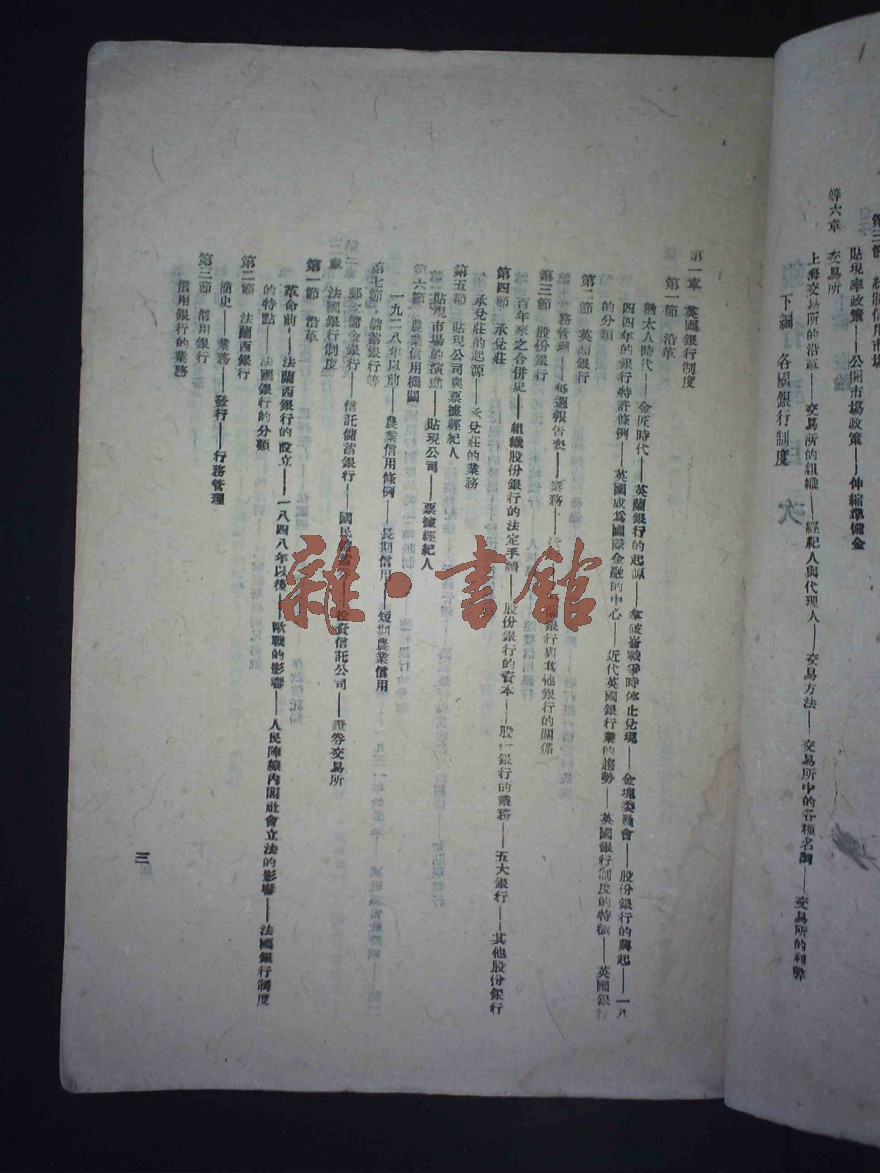 控制信用市場
貼現率政策——公開市場政策——伸縮準備金
第六章 交易所
上海交易所的沿革——交易所的組織——經紀人與代理人——交易方法——交易所中的各種名詞——交易所的利弊
下編 各國銀行制度
第一章 英國銀行制度
第一節 沿革
猶太人時代——金匠時代——英蘭銀行的起源——拿破崙戰爭時休止兌現——金塊委員會——股份銀行的興起——一八
四四年的銀行特許條例——英國成為國際金融的中心——近代英國銀行業的趨勢——英國銀行制度的特徵——英國銀行
的分類
第二節 英蘭銀行
務管理——每週報告表——業務——銀行與其他銀行的關係
第三節 股份銀行
百年來之合併史——組織股份銀行的法定手續——股份銀行的資本——股份銀行的業務——五大銀行——其他股份銀行
第四節 承兌莊
承兌莊的起源——承兌莊的業務
第五節 貼現公司與票據經紀人
貼現市場的演進——貼現公司——票據經紀人
第六節 農業信用機關
一九二八年以前——農業信用條例——長期信用——短期農業信用
第七節 儲蓄銀行等
郵政儲金銀行——信託儲蓄銀行——國民——投資信託公司——證券交易所
章 法國銀行制度
第一節 沿革
革命前——法蘭西銀行的設立——一八四八年以後——歐戰的影響——人民陣線內閣社會立法的影響——法國銀行制度
的特點——法國銀行的分類
第二節 法蘭西銀行
簡史——業務——發行——行務管理
第三節 信用銀行
信用銀行的業務
三
雜·書館